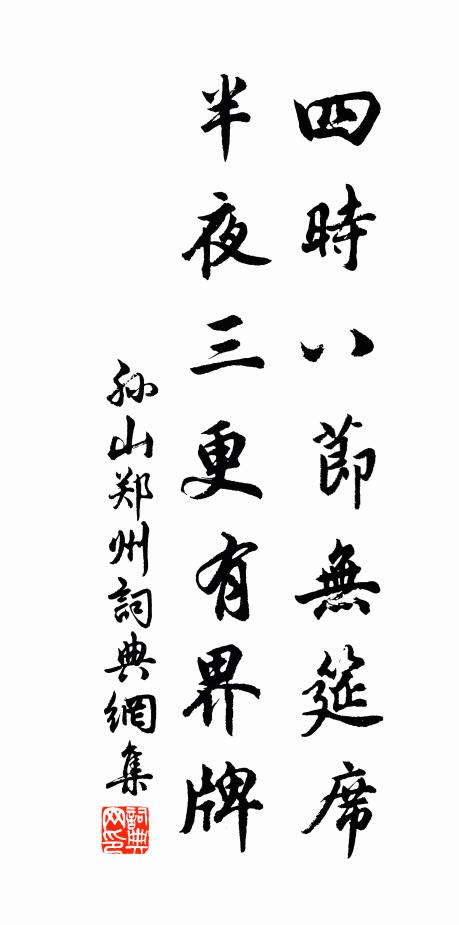 四時八節無筵席
半夜三更有界牌
孙山郑州詞典網集
詞典网印